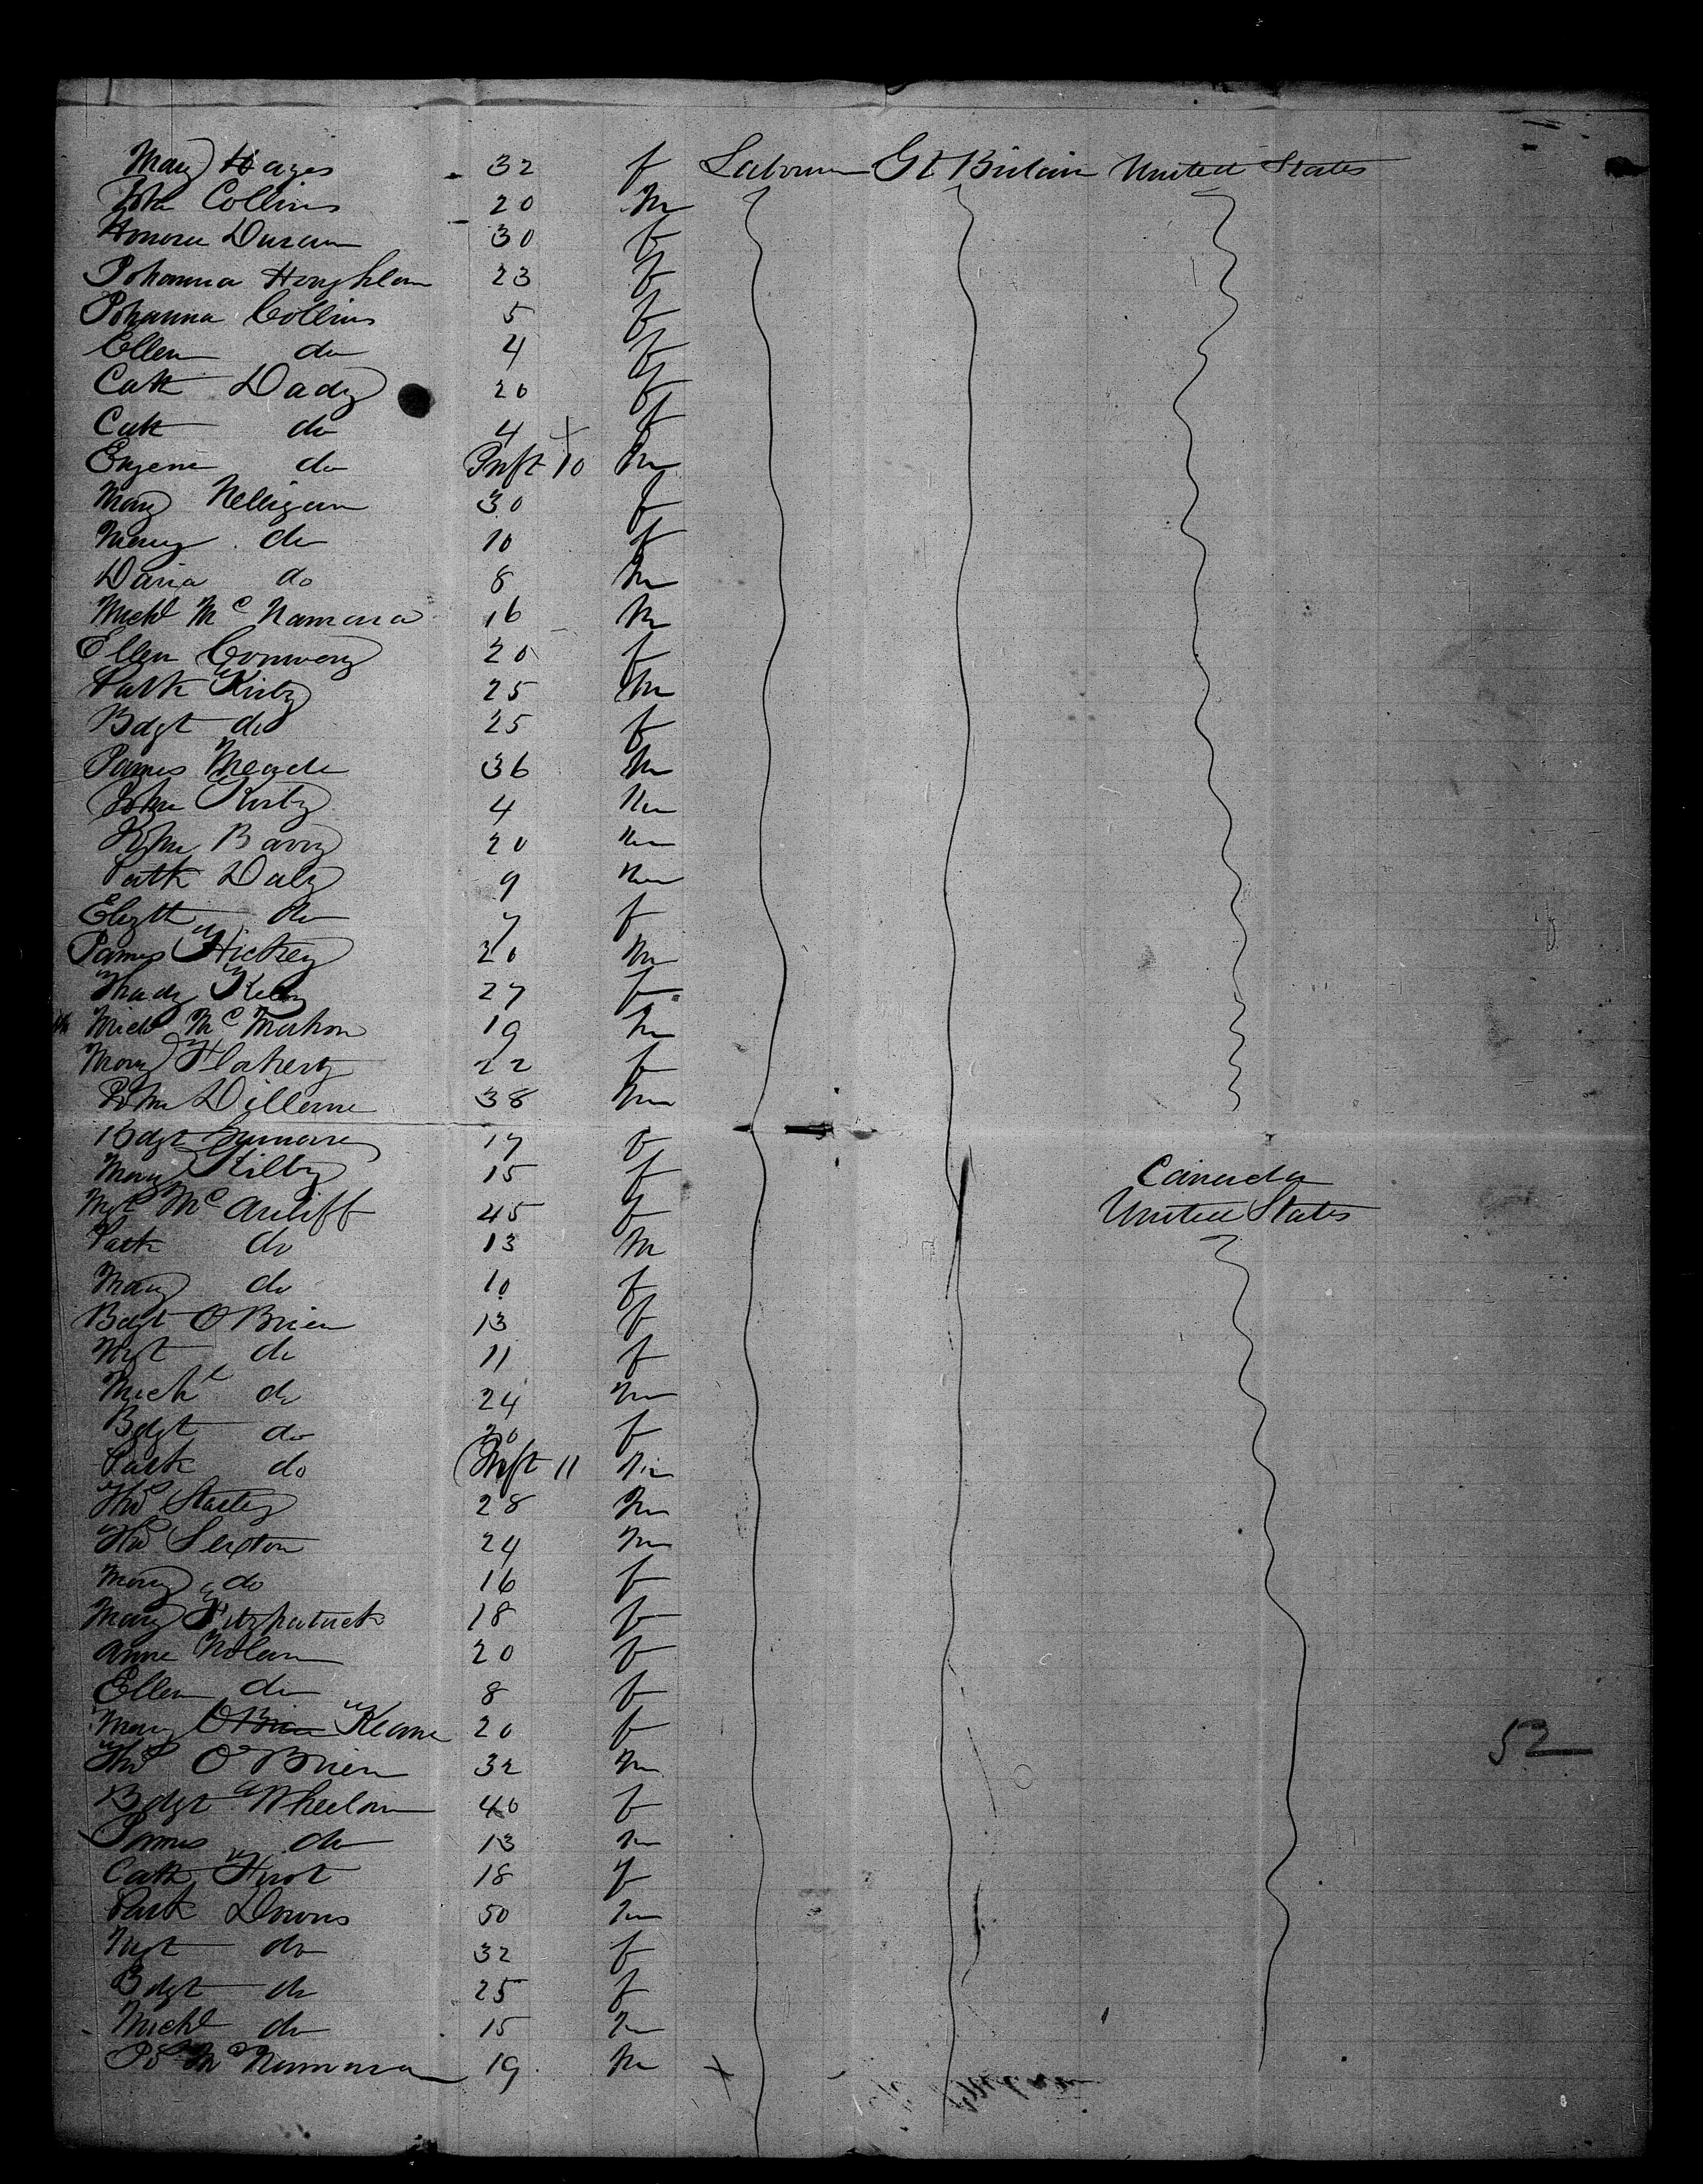 Mary Hayes 32 f Labourer Gt Britain United States
John Collins 20 m
Honora Duran 30 f
Johanna Houghlan 23 f
Johanna Collins 5 f
Ellen do 4 f
Cath Dady 20 f
Cath do 4 f
Eugene do Inft 10 m
Mary Nelligan 30 f
Mary do 10 f
Daria do 8 m
Michl Mc Namara 16 m
Ellen Conway 20 f
Patk Kirby 25 m
Bdgt do 25 f
James Meade 36 m
John Kirby 4 m
John Barry 20 m
Patk Daly 9 m
Elizth do 7 f
James Hickey 20 m
Thady 27 f
Michl Mc Mahon 19 m
Mary Flaherty 22 f
John Dillane 38 m
Bdgt 17 f
Mary Kilby 15 f Canada
Mgt Mc Auliff 45 f United States
Patk do 13 m
Mary do 10 f
Bdgt O Brien 13 f
Mgt do 11 f
Michl do 24 m
Bdgt do 20 f
Patk do Inft 11 m
Thos 28 m
Thos Sexton 24 m
Mary do 16 f
Mary Fitzpatrick 18 f
Anne Nolan 20 f
Ellen do 8 f
Mary O Brien Keane 20 f
Thos O Brien 32 m 52
Bdgt Wheelan 40 f
James do 13 m
Cath Hurst 18 f
Patk Downs 50 m
Mgt do 32 f
Bdgt do 25 f
Michl do 15 m
Jo Mc Namara 19 m